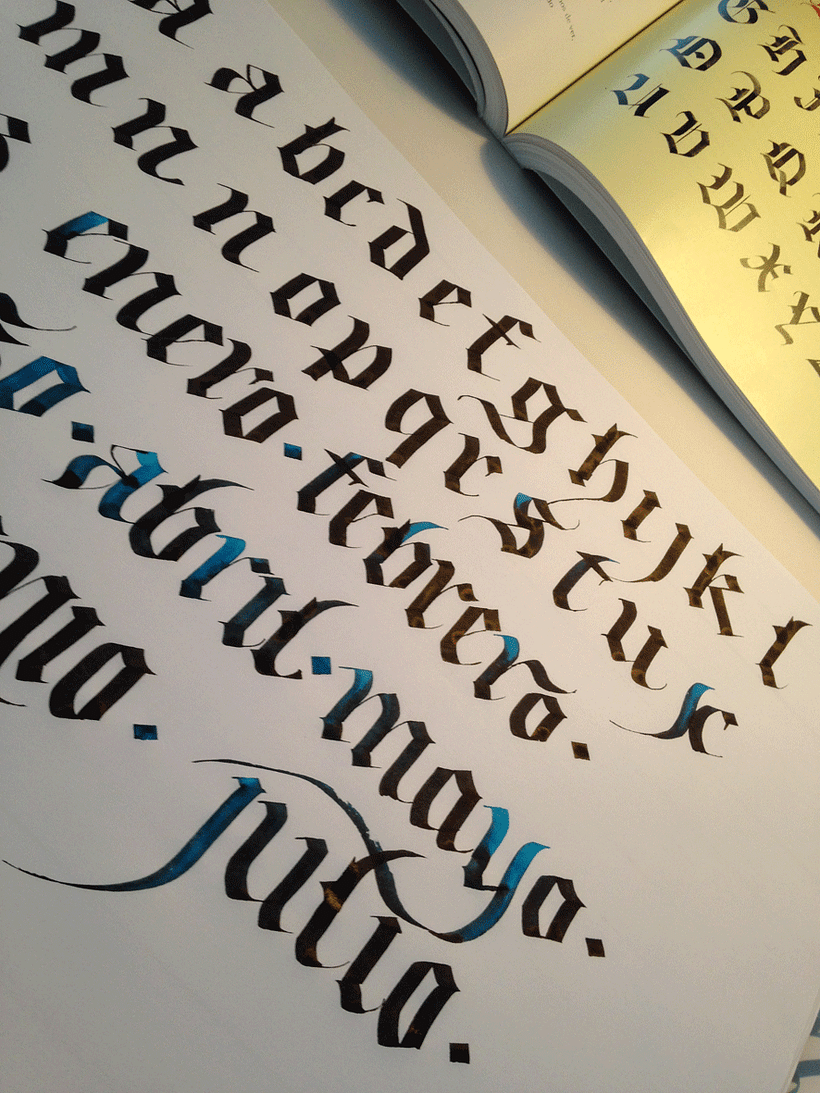 a b c d e f g h i j k l
m n n o p q r s t u x
enero. febrero.
o. abril. mayo.
nio. julio.
G H
O P Q
U V W X